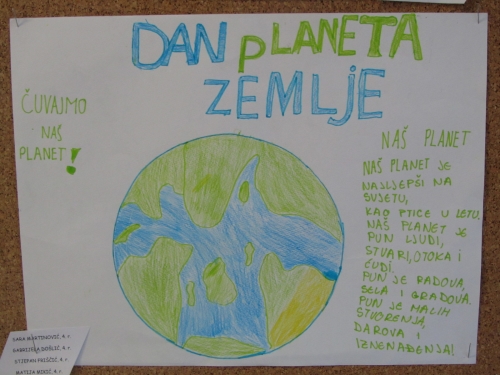 DAN PLANETA
ZEMLJE
ČUVAJMO
NAŠ
PLANET!
NAŠ PLANET
NAŠ PLANET JE
NAJLJEPŠI NA
SVIJETU,
KAO PTICE U LETU.
NAŠ PLANET JE
PUN LJUDI,
STVARI, OTOKA I
ĆUDI.
PUN JE RADOVA,
SELA I GRADOVA.
PUN JE MALIH
STVORENJA,
DAROVA I
IZNENAĐENJA!
SARA MARTINOVIĆ, 4. r.
STJEPAN
MATEJA